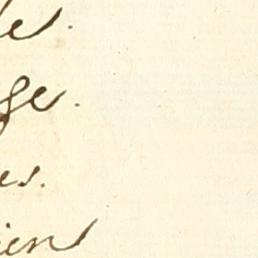 le.
ge.
es.
ien